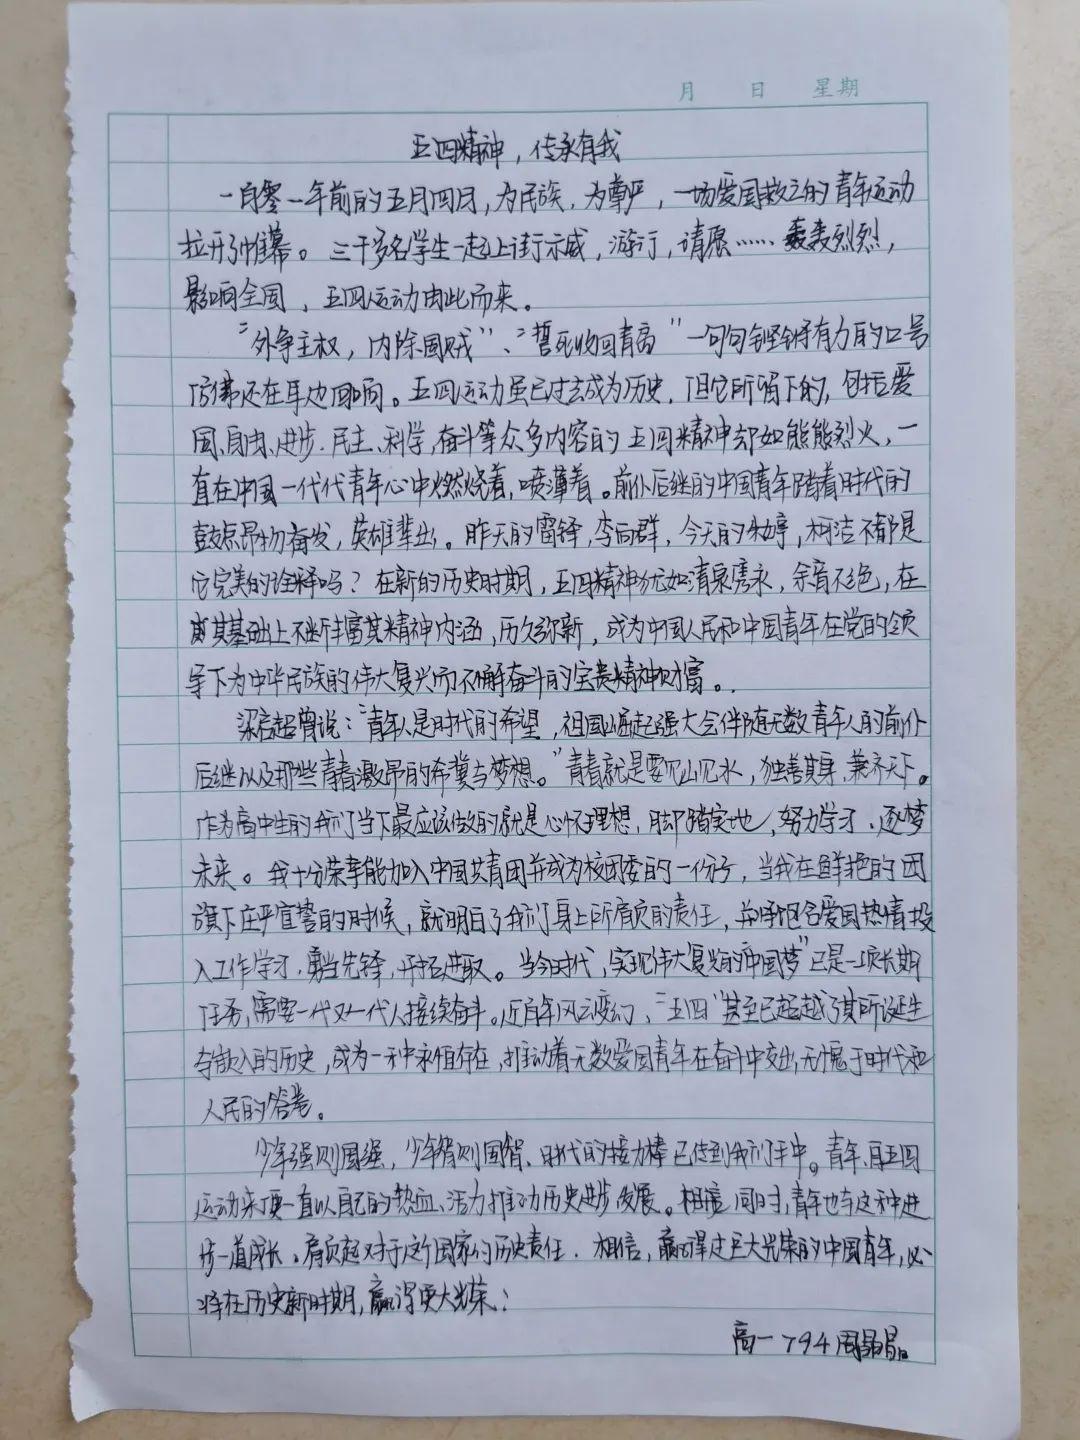 月 日 星期
五四精神，传承有我
一百零一年前的五月四日，为民族，为尊严，一场爱国救亡的青年运动
拉开了帷幕。三千多名学生一起上街示威，游行，请愿……轰轰烈烈，
影响全国，五四运动由此而来。
“外争主权，内除国贼”、“誓死收回青岛”一句句铿锵有力的口号
仿佛还在耳边回响。五四运动虽已过去成为历史，但它所留下的，包括爱
国、自由、进步、民主、科学，奋斗等众多内容的五四精神却如熊熊烈火，一
直在中国一代代青年心中燃烧着，喷薄着。前仆后继的中国青年踏着时代的
鼓点昂扬奋发，英雄辈出。昨天的雷锋，李向群，今天的朱婷，柯洁不都是
它完美的诠释吗？在新的历史时期，五四精神犹如清泉隽永，余音不绝，在
其基础上不断丰富其精神内涵，历久弥新，成为中国人民和中国青年在党的领
导下为中华民族的伟大复兴而不懈奋斗的宝贵精神财富。
梁启超曾说：“青年人是时代的希望，祖国崛起强大会伴随无数青年人的前仆
后继以及那些青春激昂的希冀与梦想。”青春就是要见山见水，独善其身，兼济天下。
作为高中生的我们当下最应该做的就是心怀理想，脚踏实地，努力学习，逐梦
未来。我十分荣幸能加入中国共青团并成为校团委的一份子，当我在鲜艳的团
旗下庄严宣誓的时候，就明白了我们身上所肩负的责任，并满爱国热情投
入工作学习，勇当先锋，开拓进取。当今时代，实现伟大复兴的“中国梦”已是一项长期
任务，需要一代又一代人接续奋斗。近百年风云变幻，“五四”甚至已超越了其所诞生
与嵌入的历史，成为一种永恒存在，推动着无数爱国青年在奋斗中交出无愧于时代和
人民的答卷。
少年强则国强，少年智则国智、时代的接力棒已传到我们手中。青年，自五四
运动来便一直以自己的热血、活力推动历史进步发展。相信，同时，青年也与这种进
步一道成长，肩负起对于这个国家的历史责任．相信，赢得过巨大光荣的中国青年，必
将在历史新时期，赢得更大光荣！
高一794周